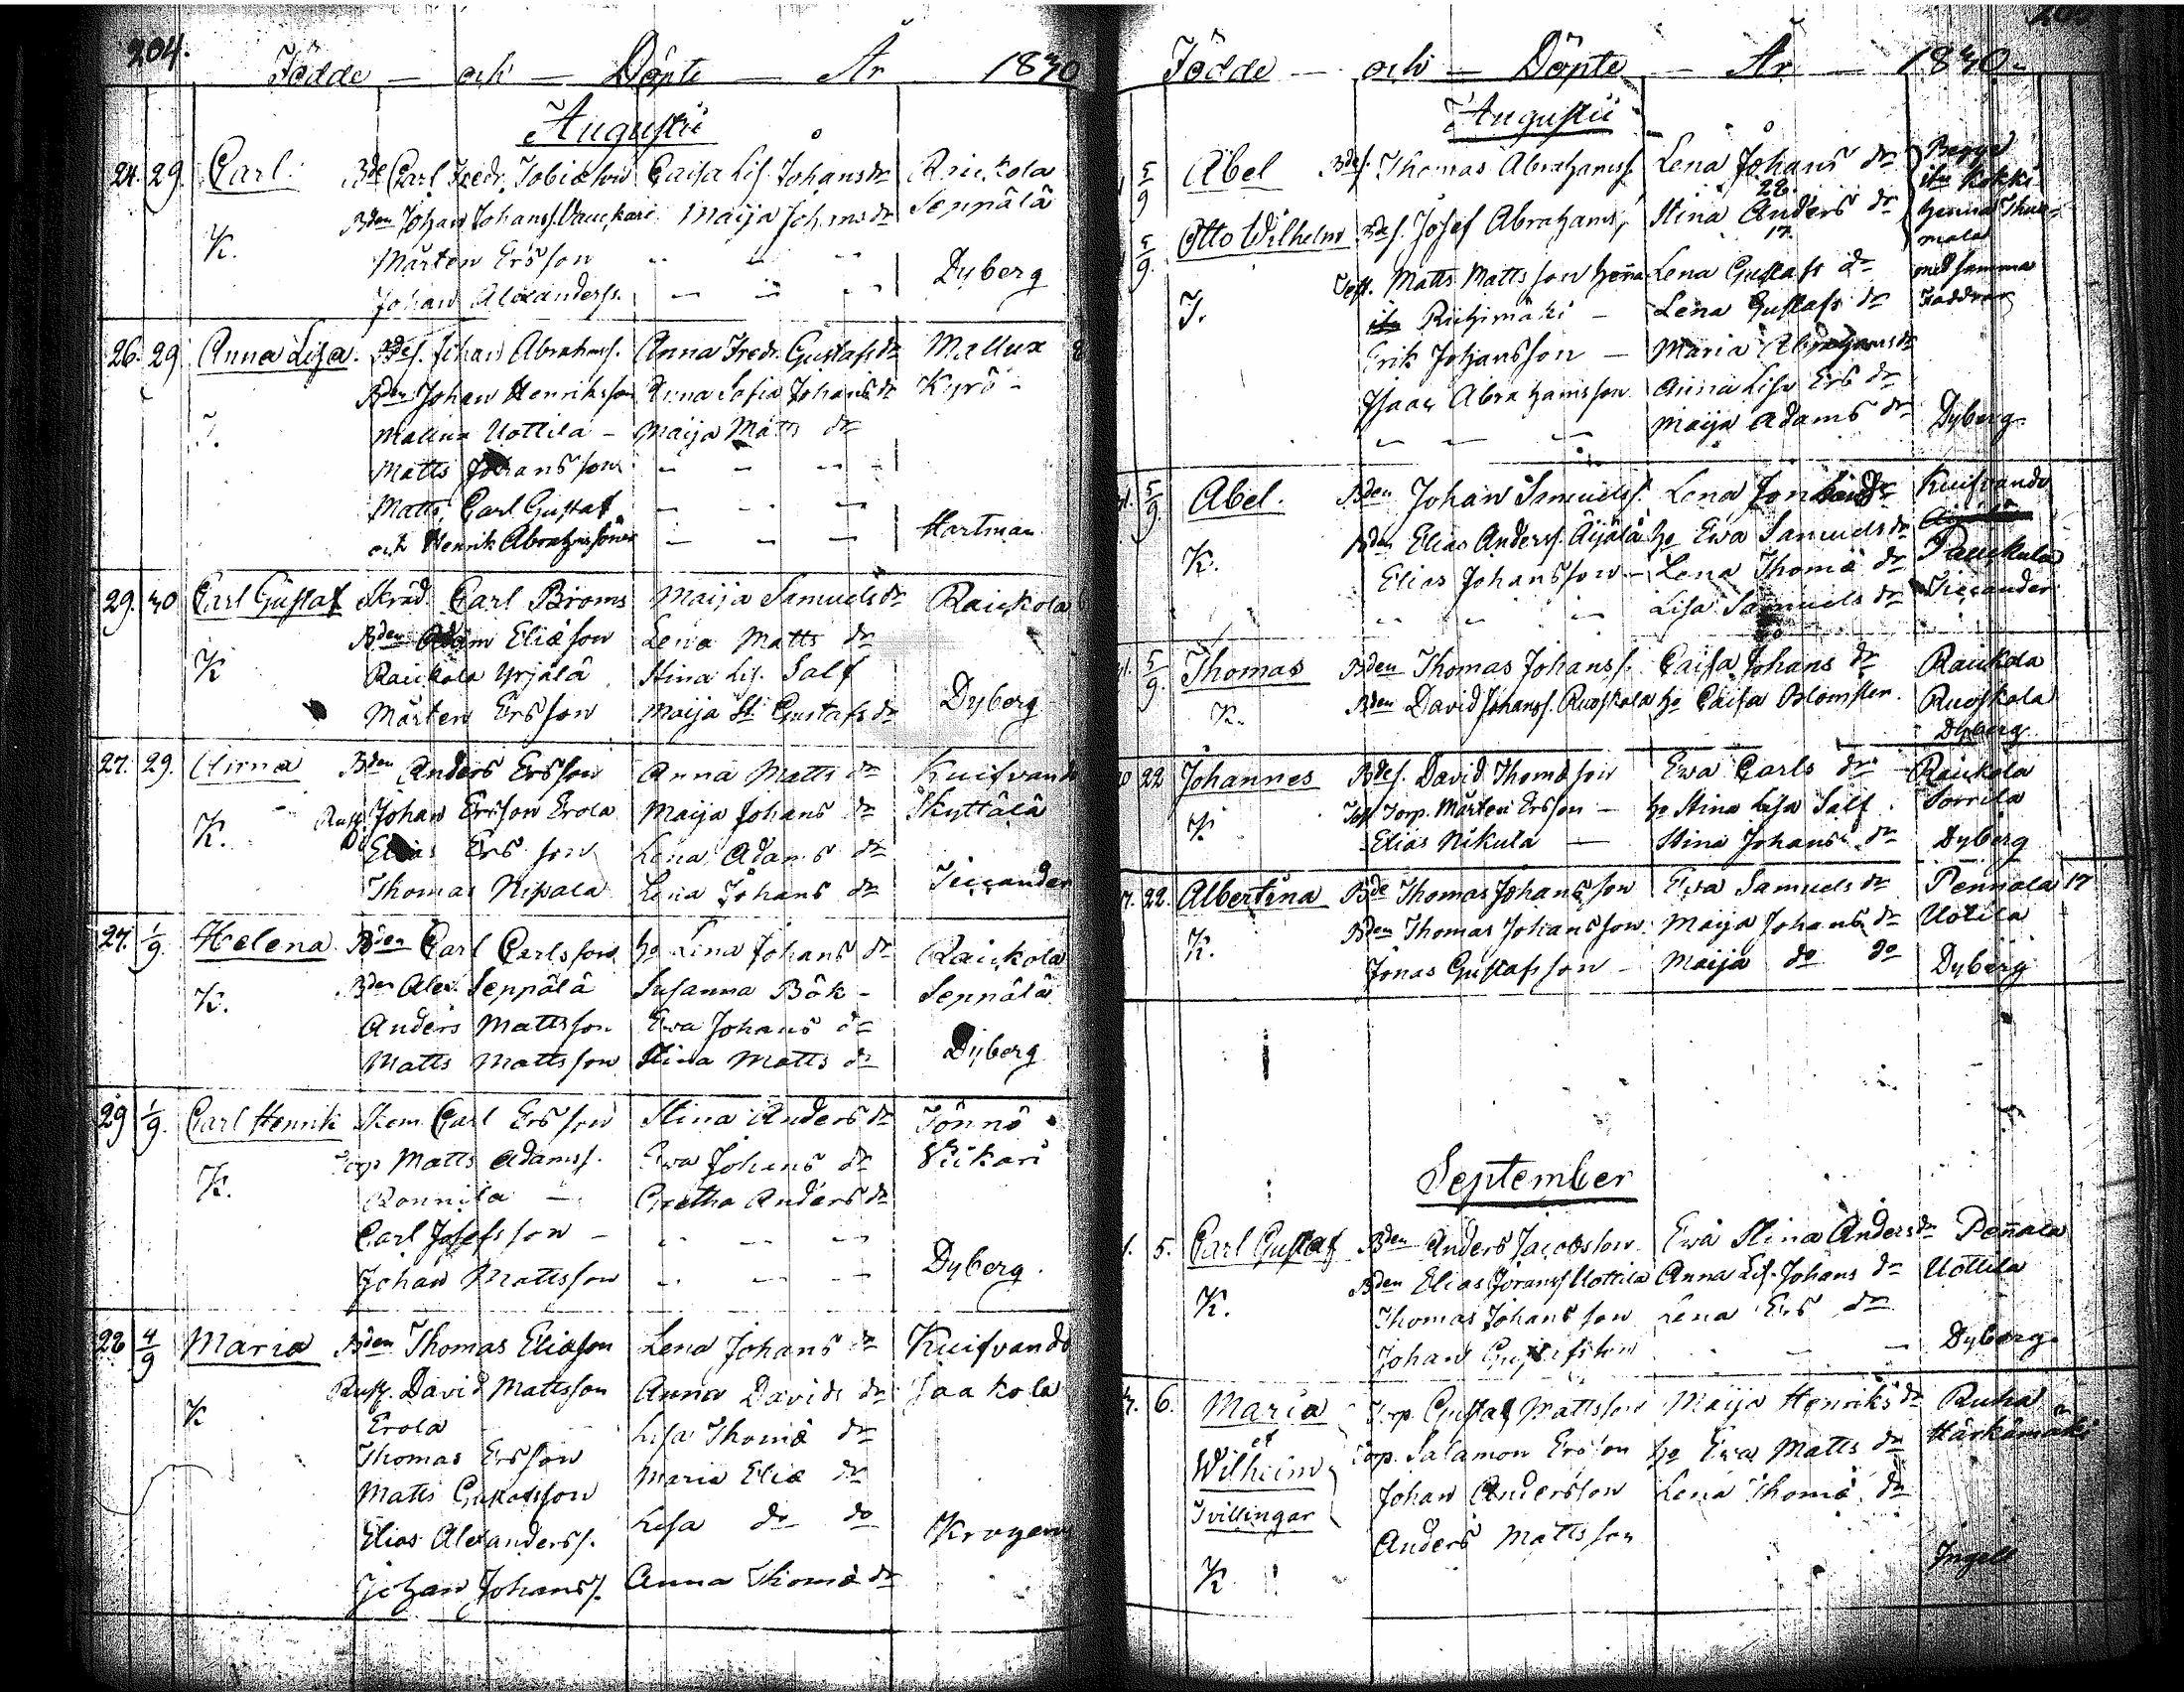 204.
Födde — och — Döpte — År 1830
Augusti
24. 29. Carl. Bde Carl Fredr. Tobiæson Caisa Lis. Johans dr Raickola
Bden Johan Johanss. Vauckari Maija Johans dr Seppälä
K. Mårten Ersson
Johan Alexanderss. Dyberg
26. 29 Anna Lisa. Bdes. Johan Abrahamss. Anna Fredr. Gustafs dr Mallux
Bden Johan Henriksson Anna Sofia Johans dr Kyrö
T. Mallux Uottila - Maija Matts dr
Matts Johansson
Matts, Carl Gustaf
och Henrik Abrahamssöner Hartman
29. 30 Carl Gustaf Skräd. Carl Broms Maija Samuels dr Raickola
Bden Adam Eliæson Lena Matts dr
K Raickola Yrjälä Stina Lis. Salf
Mårten Ersson Maija St. Gustafs dr Dyberg
27. 29. Anna Bden Anders Ersson Anna Matts dr Kuifvando
Rust Johan Ersson Erola Maija Johans dr Skyttälä
K. Elias Ersson Lena Adams dr
Thomas Nipala Lena Johans dr Ticcander
27. 1/9. Helena Bden Carl Carlsson ho Lina Johans dr Raickola
Bden Alex. Seppälä Susanna Bök - Seppälä
K. Anders Mattsson Ewa Johans dr
Matts Mattsson Stina Matts dr Dyberg
29 1/9. Carl Henrik Skom. Carl Ersson Stina Anders dr Tönnö
Torp Matts Adamss. Ewa Johans dr Viikari
K. Ronnila — Gretha Anders dr
Carl Josefsson -
Johan Mattsson Dyberg.
28 4/9 Maria Bden Thomas Eliæson Lena Johans dr Kuifvando
Rust. David Mattsson Anna Davids dr Jaakola
K Erola Lisa Thomæ dr
Thomas Ersson
Matts Gustafsson Maria Eliæ dr
Elias Alexanderss. Lisa dr do Krogerus
Johan Johanss. Anna Thomæ dr
Födde — och — Döpte — År — 1830.
Augusti
5/9 Abel Bdes. Thomas Abrahamss. Lena Johans dr
28. Kokki
5/9. Otto Wilhelm Bdes. Josef Abrahams. Stina Anders dr
17.
Test. Matts Mattsson Lena Gustafs dr med samma
T. Riihimäki - Lena Gustafs dr Faddrar
Erik Johansson — Maria Abrahams dr
Isaac Abrahamsson Anna Lisa Ers dr
Maija Adams dr Dyberg
5/9. Abel. Bden Johan Samuelss. Lena Kuifvando
Bden Elias Anderss. Äijälä ho Ewa Samuels dr
K. Elias Johansson - Lena Thomæ dr Pauckula
Lisa Samuels dr Ticcander
5/9. Thomas Bden Thomas Johanss. Caisa Johans dr Raickola
K. Bden David Johanss. Ruoskala ho Caisa Blomster. Ruoskala
Dyberg
22 Johannes Bdes. David Thomæson Ewa Carls dr Raickola
Test Torp. Mårten Ersson — ho Stina Lisa Salf. Sorrila
K Elias Nikula — Stina Johans dr Dyberg
22. Albertina Bde Thomas Johansson Ewa Samuels dr Pennala 17
Bden Thomas Johansson Maija Johans dr Uotila
K. Jonas Gustafsson - Maija do do Dyberg
September
5. Carl Gustaf Bden Anders Jacobsson Ewa Stina Anders dr Pennala
Bden Elias Göranss. Uottila Anna Lis. Johans dr Uottila
K. Thomas Johansson Lena Ers dr
Johan Gustafsson Dyberg
6. Maria Torp. Gustaf Mattsson Maija Henriks dr Ruha
et Torp. Salamon Ersson ho Ewa Matts dr Härkämäki
Wilhelm Johan Andersson Lena Thomæ dr
Tvillingar Anders Mattsson
K Ingell